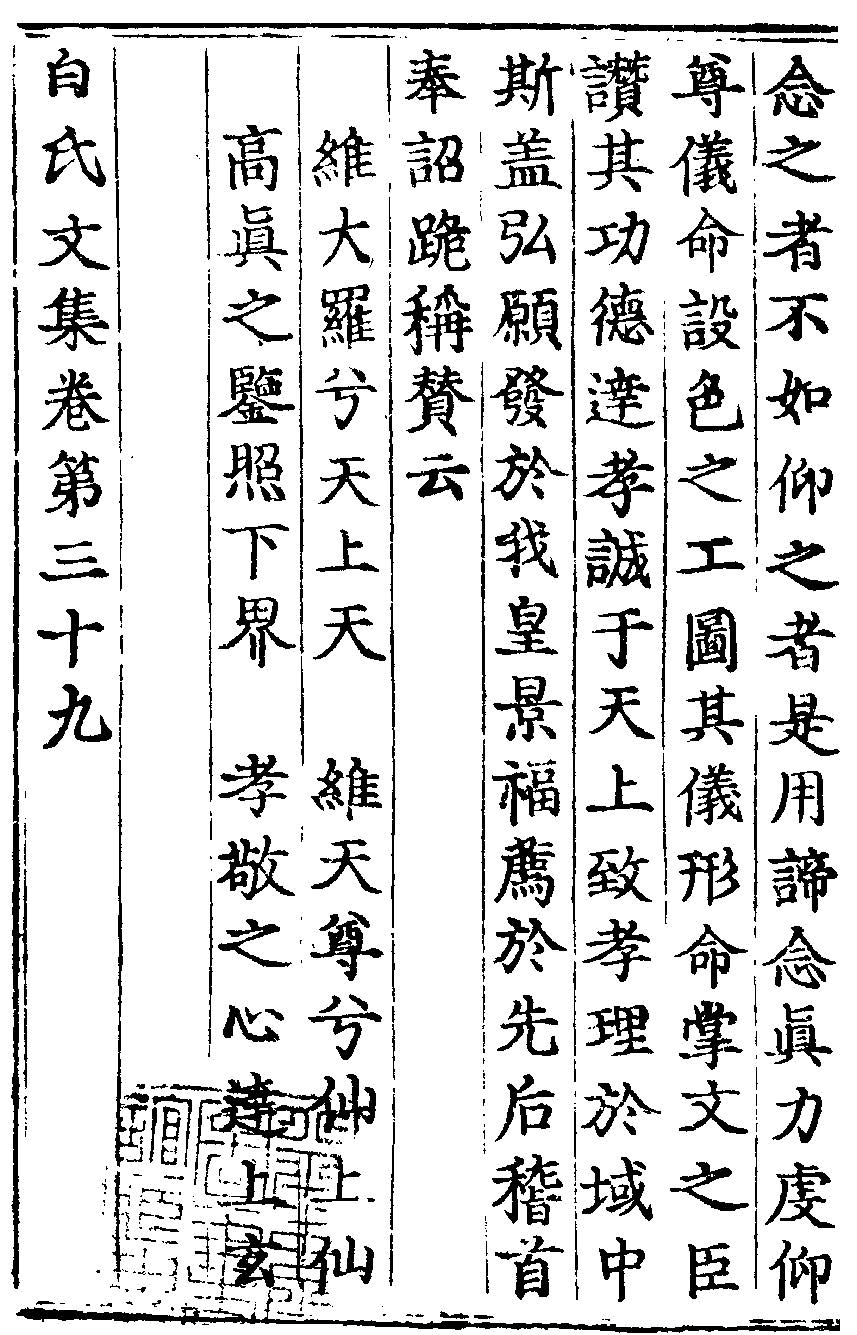 念之者不如仰之者是用諦念眞力虔仰
尊儀命設色之工圖其儀形命掌文之臣
讃其功德達孝誠于天上致孝理於域中
斯盖弘願發於我皇景福薦於先后稽首
奉詔跪稱賛云
維大羅兮天上天　維天尊兮仙上仙
高眞之鑒照下界　孝敬之心達上玄
白氏文集卷第三十九